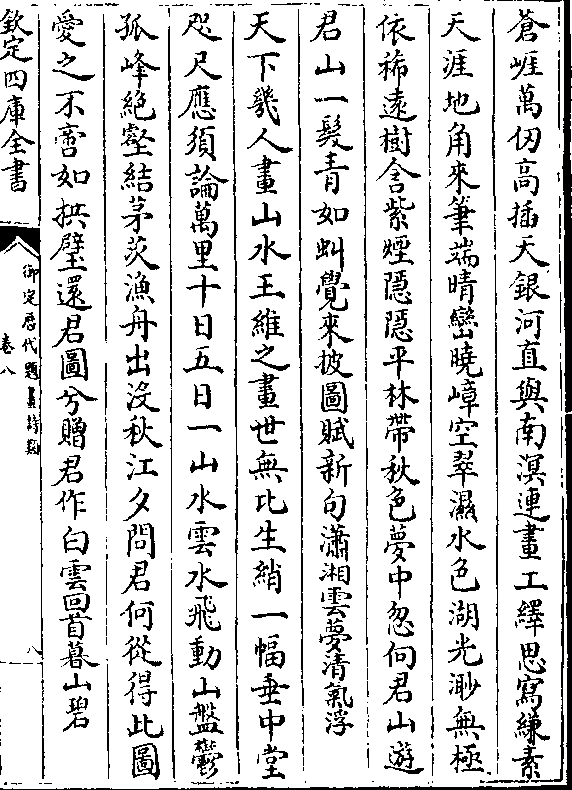 蒼崕萬仞高插天銀河直與南溟連畫工繹思寫縑素
天涯地角來筆端晴巒曉嶂空翠濕水色湖光渺無極
依稀遠樹含紫煙隱隱平林帶秋色夢中忽向君山遊
君山一髮青如虯覺來披圖賦新句瀟湘雲夢清氣浮
天下幾人畫山水王維之畫世無比生綃一幅垂中堂
咫尺應須論萬里十日五日一山水雲水飛動山盤鬱
孤峰絕壑結茅茨漁舟出沒秋江夕問君何從得此圖
愛之不啻如拱璧還君圖兮贈君作白雲回首暮山碧
欽定四庫全書
御定歷代題畫詩類
卷八
八